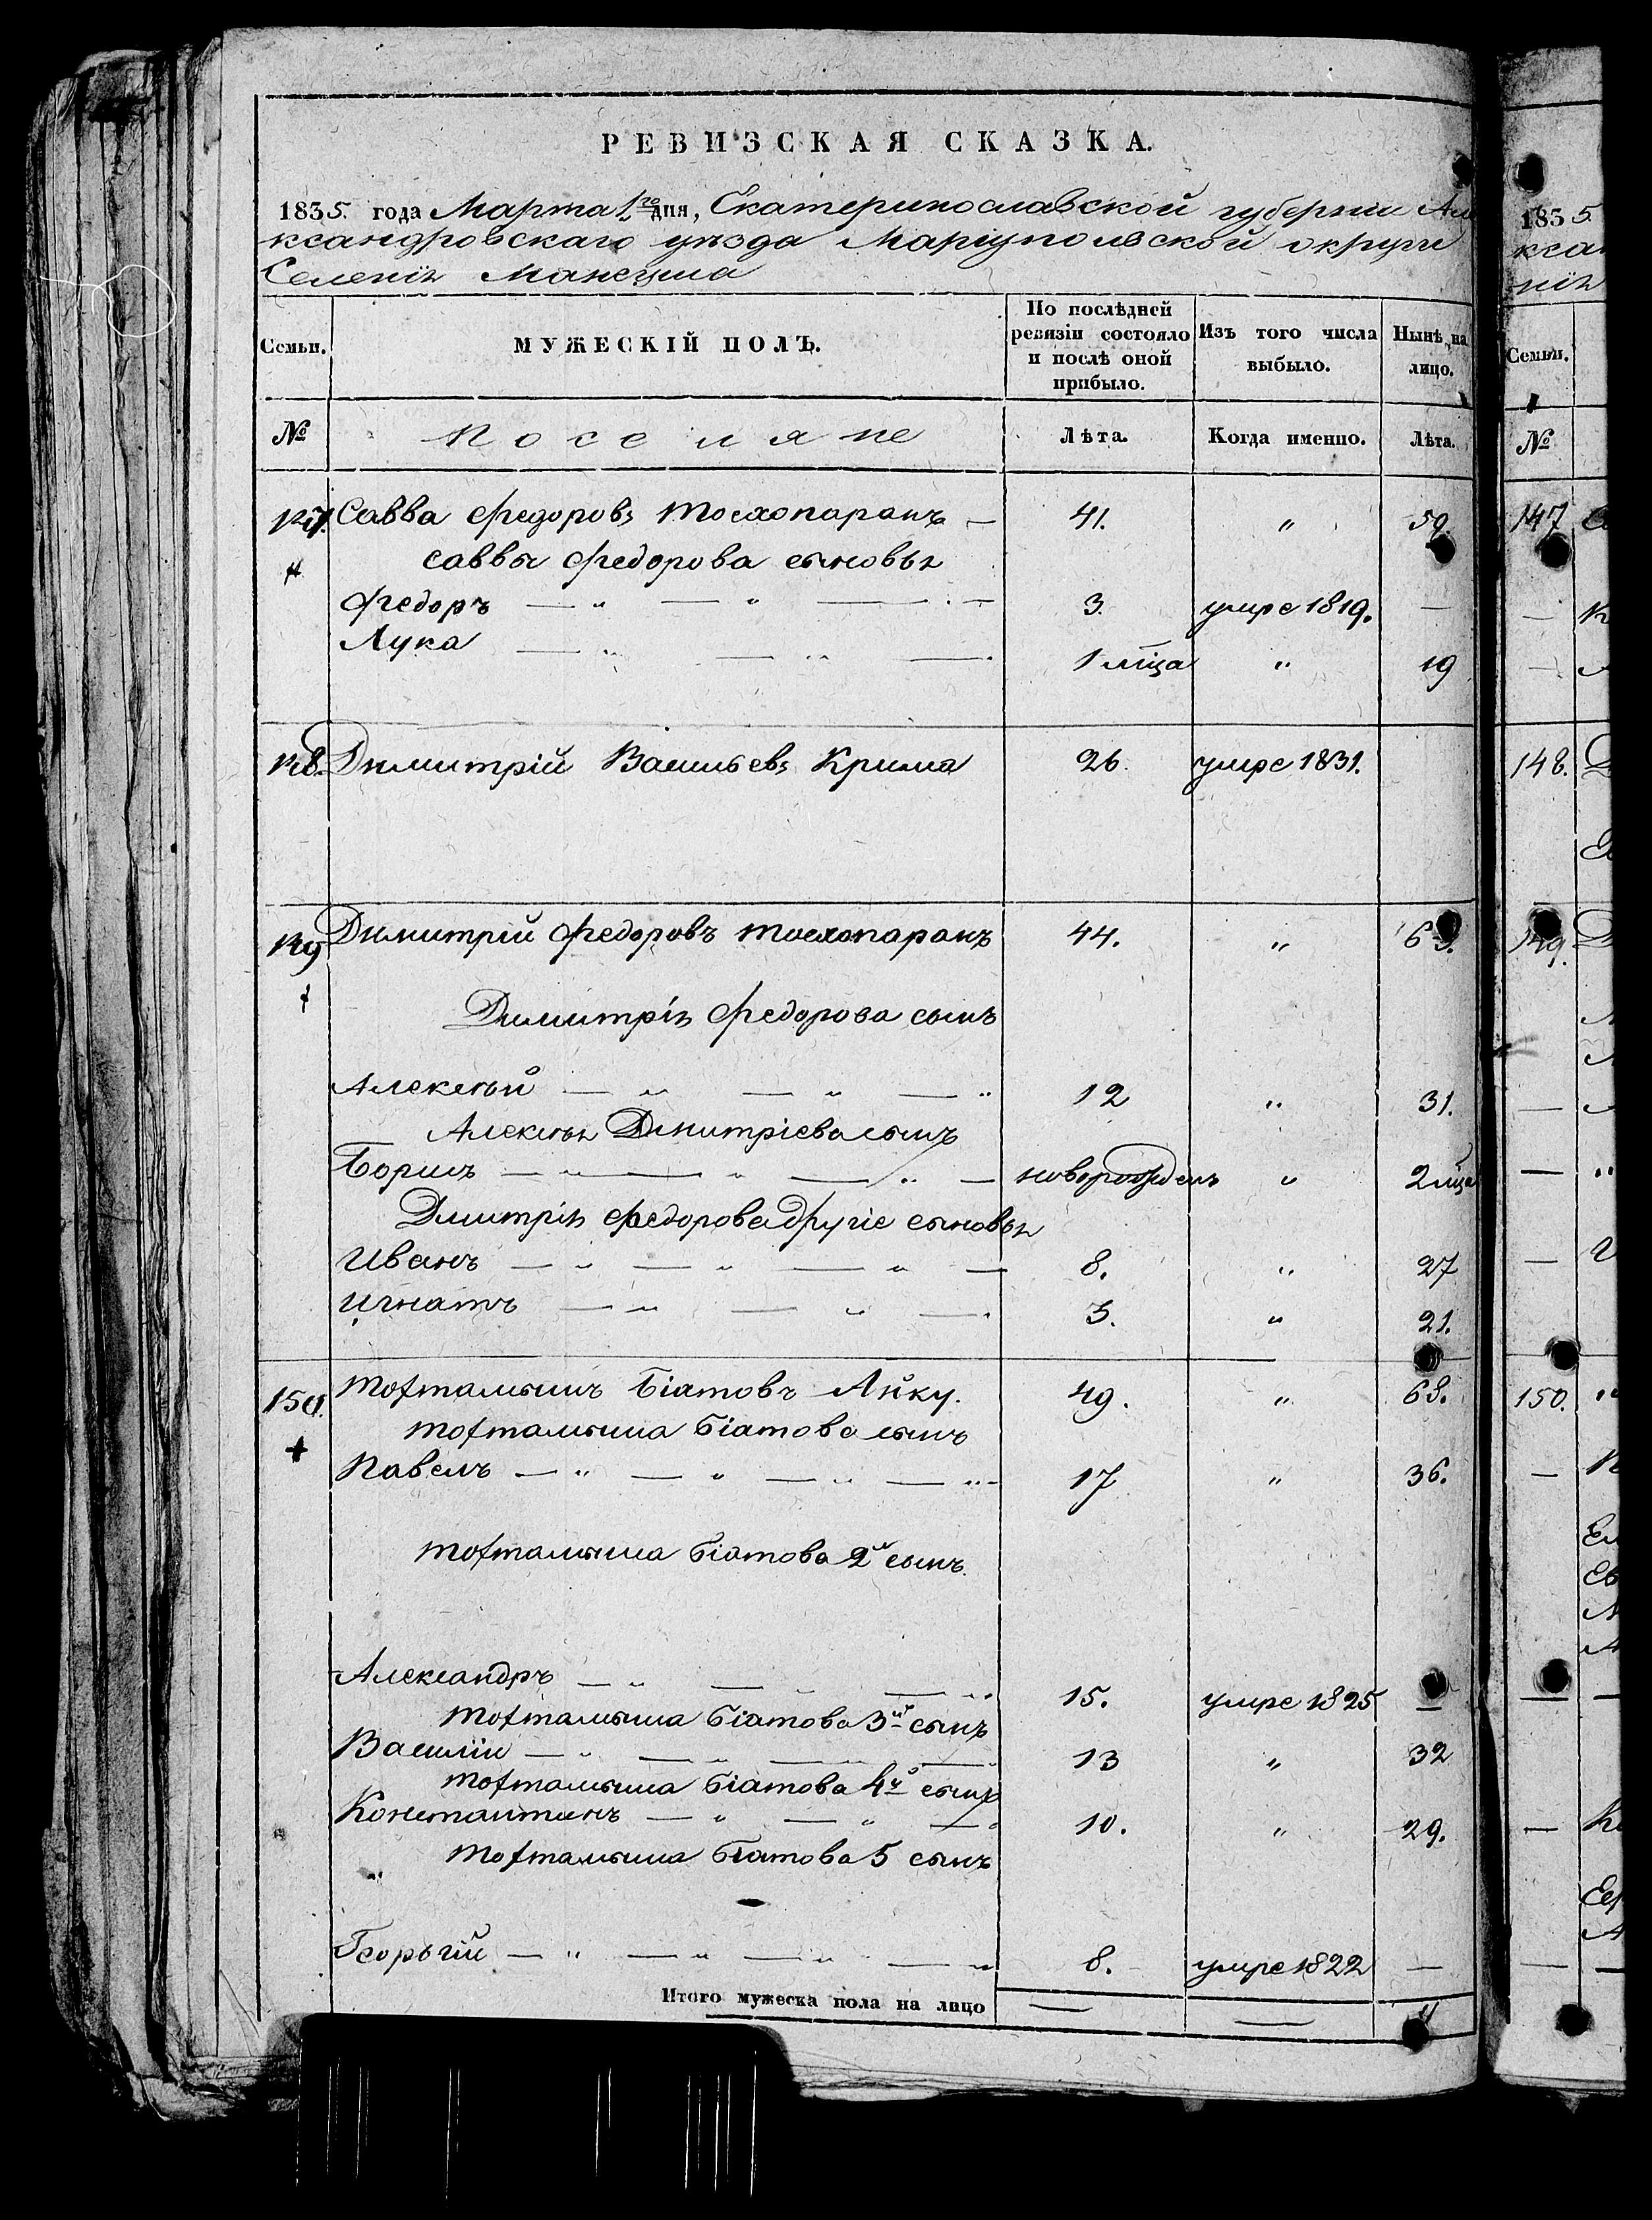 РЕВИЗСКАЯ СКАЗКА.
1835. года Марта 1го дня, Екатеринославской губернии Але
ксандровскаго уѣзда Мариупольской округи
Селенія Мангуша
Семьи.
МУЖЕСКІЙ ПОЛЪ.
По послѣдней ревизіи состояло и послѣ оной прибыло.
Изъ того числа выбыло.
Нынѣ на лицо.
№ Поселяне Лѣта. Когда именно. Лѣта.
147. Савва Федоровъ Тосхопаранъ — 41. " 59.
Саввы Федорова сыновья
Федоръ — " — " — 3. умре 1819. —
Лука — " — " — 1 мѣца " 19
148. Димитрій Васильевъ Крима 26. умре 1831.
149 Димитрій Федоровъ Тосхопаранъ 44. " 63.
Димитрія Федорова сынъ
Алексѣй — " — " — " 12 " 31.
Алексѣя Дмитріева сынъ
Борисъ — " — " — " — новорожденъ " 2 мѣца
Дмитрія Федорова другіе сыновья
Иванъ — " — " — " — 8. " 27
Игнатъ — " — " — 3. " 21.
150. Тохтамышъ Біатовъ Айку. 49. " 68.
+ Тохтамыша Біатова сынъ
Павелъ — " — " — " — " 17 " 36.
Тохтамыша Біатова 2й сынъ.
Александръ — " — " — " 15. умре 1825 —
Тохтамыша Біатова 3й сынъ
Василій — " — " — " — 13 " 32
Тохтамыша Біатова 4й сынъ
Константинъ — " — " — 10. " 29.
Тохтамыша Біатова 5 сынъ
Георьгій — " — " — " — " 8. умре 1822 —
Итого мужеска пола на лицо
1835.
Семьи.
№
147
148.
149.
150.